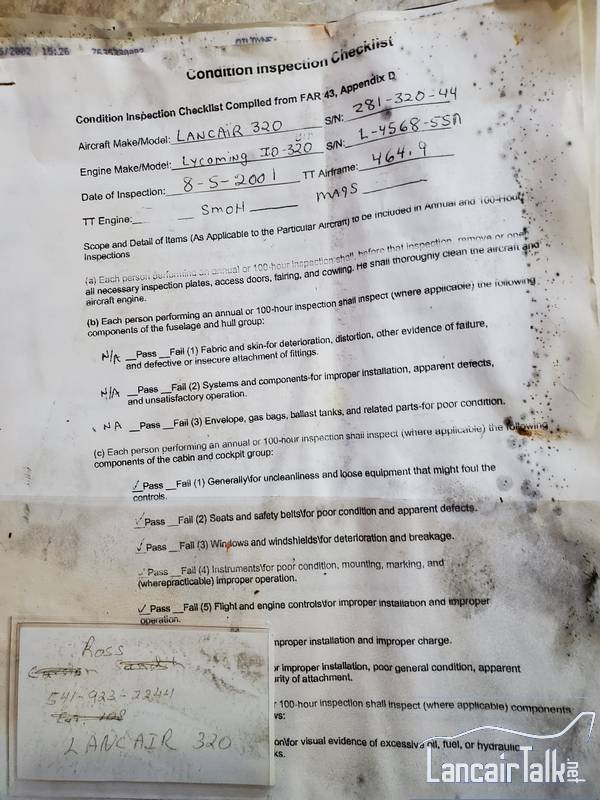 /2002 15:26
Condition Inspection Checklist
Condition Inspection Checklist Compiled from FAR 43, Appendix D
Aircraft Make/Model: LANCAIR 320 S/N: 281-320-44
Engine Make/Model: Lycoming IO-320 S/N: L-4568-55A
Date of Inspection: 8-5-2001 TT Airframe: 464.9
TT Engine: SMOH mags
Scope and Detail of Items (As Applicable to the Particular Aircraft) to be Included in Annual and 100-Hour
Inspections
(a) Each person performing an annual or 100-hour inspection shall, before that inspection, remove or open
all necessary inspection plates, access doors, fairing, and cowling. He shall thoroughly clean the aircraft and
aircraft engine.
(b) Each person performing an annual or 100-hour inspection shall inspect (where applicable) the following
components of the fuselage and hull group:
N/A __Pass __Fail (1) Fabric and skin-for deterioration, distortion, other evidence of failure,
and defective or insecure attachment of fittings.
N/A __Pass __Fail (2) Systems and components-for improper installation, apparent defects,
and unsatisfactory operation.
NA __Pass __Fail (3) Envelope, gas bags, ballast tanks, and related parts-for poor condition.
(c) Each person performing an annual or 100-hour inspection shall inspect (where applicable) the following
components of the cabin and cockpit group:
✓Pass __Fail (1) Generally\for uncleanliness and loose equipment that might foul the
controls.
✓Pass __Fail (2) Seats and safety belts\for poor condition and apparent defects.
✓Pass __Fail (3) Windows and windshields\for deterioration and breakage.
✓Pass __Fail (4) Instruments\for poor condition, mounting, marking, and
(wherepracticable) improper operation.
✓Pass __Fail (5) Flight and engine controls\for improper installation and improper
operation.
mproper installation and improper charge.
r improper installation, poor general condition, apparent
rity of attachment.
100-hour inspection shall inspect (where applicable) components
ws:
on\for visual evidence of excessive oil, fuel, or hydraulic
ks.
Ross
541-923-2244
Ext. 108
LANCAIR 320
LancairTalk.net